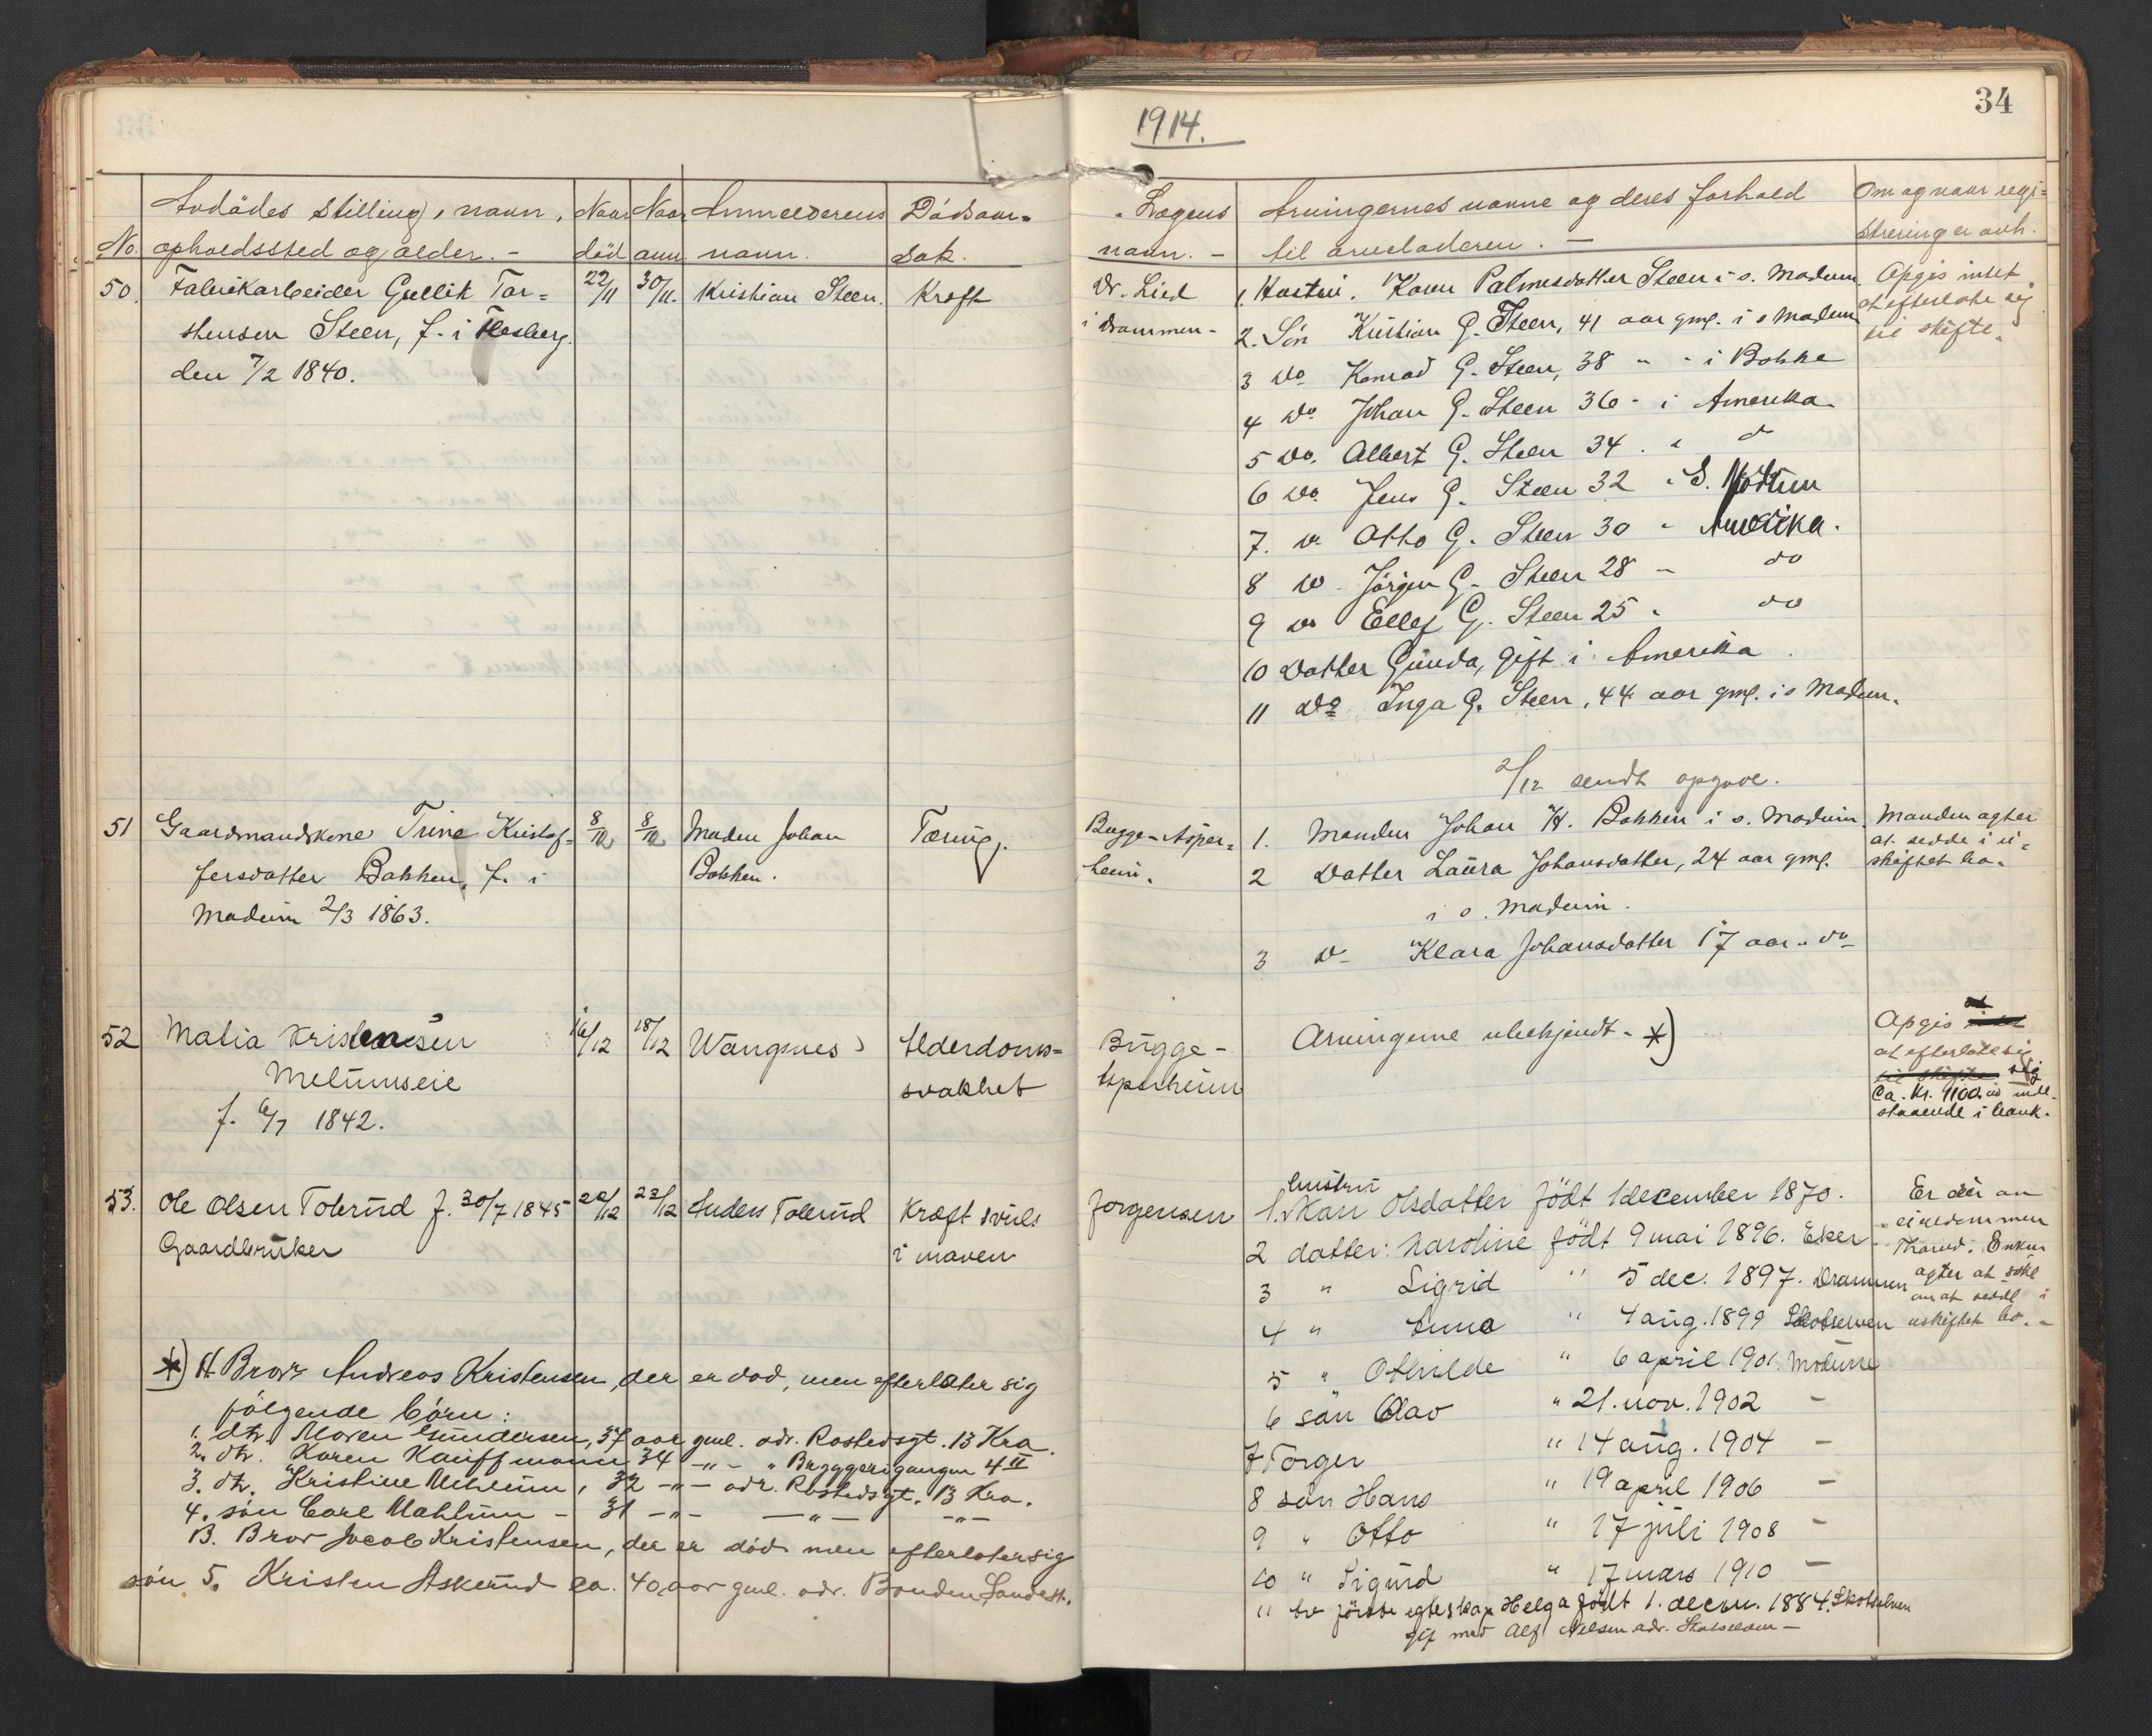 34
1914.
No.
Avdødes stilling, navn,
opholdssted og alder. -
Naar
død
Naar
anm.
Anmelderens
navn.
Dødsaar-
sak.
Lægens
navn. -
Arvingernes navne og deres forhold
til arveladeren. -
Om og naar regi-
strering er avh.
50.
Fabrikarbeider Gullik Tor-
stensen Steen, f. i Flesberg
den 7/2 1840.
22/11
30/11.
Kristian Steen.
Kræft
Dr. Lied
i Drammen -
1. Hustru. Karen Palmesdatter Steen i s. Modum
2. Søn Kristian G. Steen, 41 aar gml. i s Modum
3 do Konrad G. Steen, 38 " " i Bakke
4 do Johan G. Steen 36 - i Amerika
5 do. Albert G. Steen 34 . " do
6 do Jens G. Steen 32 " S. Modum
7. do Otto G. Steen 30 " Amerika.
8 do - Jørgen G. Steen 28 - do
9 do Ellef G. Steen 25 " do
10 Datter Gunda, gift i Amerika
11 do Inga G. Steen, 44 aar gml. i s Modum.
2/12 sendt opgave.
Opgis intet
at efterlate sig
til skifte.
51
Gaardmandskone Trine Kristof-
fersdatter Bakken, f. i
Modum 2/3 1863.
8/12
8/12
Manden Johan
Bakken.
Tæring.
Bugge-Asper-
heim.
1. Manden Johan H. Bakken i s. Modum
2 Datter Laura Johansdatter, 24 aar gml.
i s. Modum.
3 do Klara Johansdatter 17 aar " do
Manden agter
at sedde i u-
skiftet bo.
52
Matia Kristensen
Melumseie
f. 6/7 1842.
16/12
18/12
Wangsnes
Alderdoms-
svakhet
Bugge-
Asperheim
Arvingerne ubekjendt - *)
Opgis
at efterlate sig
til skifte
Ca. Kr. 1100.00 inde-
staaende i bank.
53.
Ole Olsen Tolerud f. 30/7 1845
Gaardbruker
22/12
23/12
Anders Tolerud
Kræft svuls
i maven
Jørgensen
hustru
1. Kari Olsdatter født 1 december 1870.
2 datter: Karoline født 9 mai 1896. Eker
3 " Sigrid " 5 dec. 1897. Drammen
4 " Anna " 4 aug. 1899 Skotselven
5 " Othilde " 6 april 1901. Modum
6 søn Olav " 21. nov. 1902 -
7 Torger " 14 aug. 1904 -
8 søn Hans " 19 april 1906 -
9 " Otto " 17 juli 1908 -
10 " Sigurd " 17 mars 1910 -
11 av første egteskap Helga født 1. decbr. 1884. Skotselven
gift med Alf Nilsen adr. Skotselven -
Er eier av
eiendommen
Enken
agter at søke
om at sedde i
uskiftet bo. -
*) A Bror Andreas Kristensen, der er død, men efterlater sig
følgende børn:
1. dtr. Maren Gundersen, 37 aar gml. adr. Rostedsgt. 13 Kra.
2. dtr. Karen Kauffmann 34 -"- " Bryggerigangen 4 II
3. dtr. Kristine Mehlum, 32 -"- adr. Rostedsgt. 13 Kra.
4. søn Carl Mahlum - 31 -"- -"- -"-
B. Bror Jacob Kristensen, der er død men efterlater sig
søn 5. Kristen Askerud ca. 40 aar gml. adr.